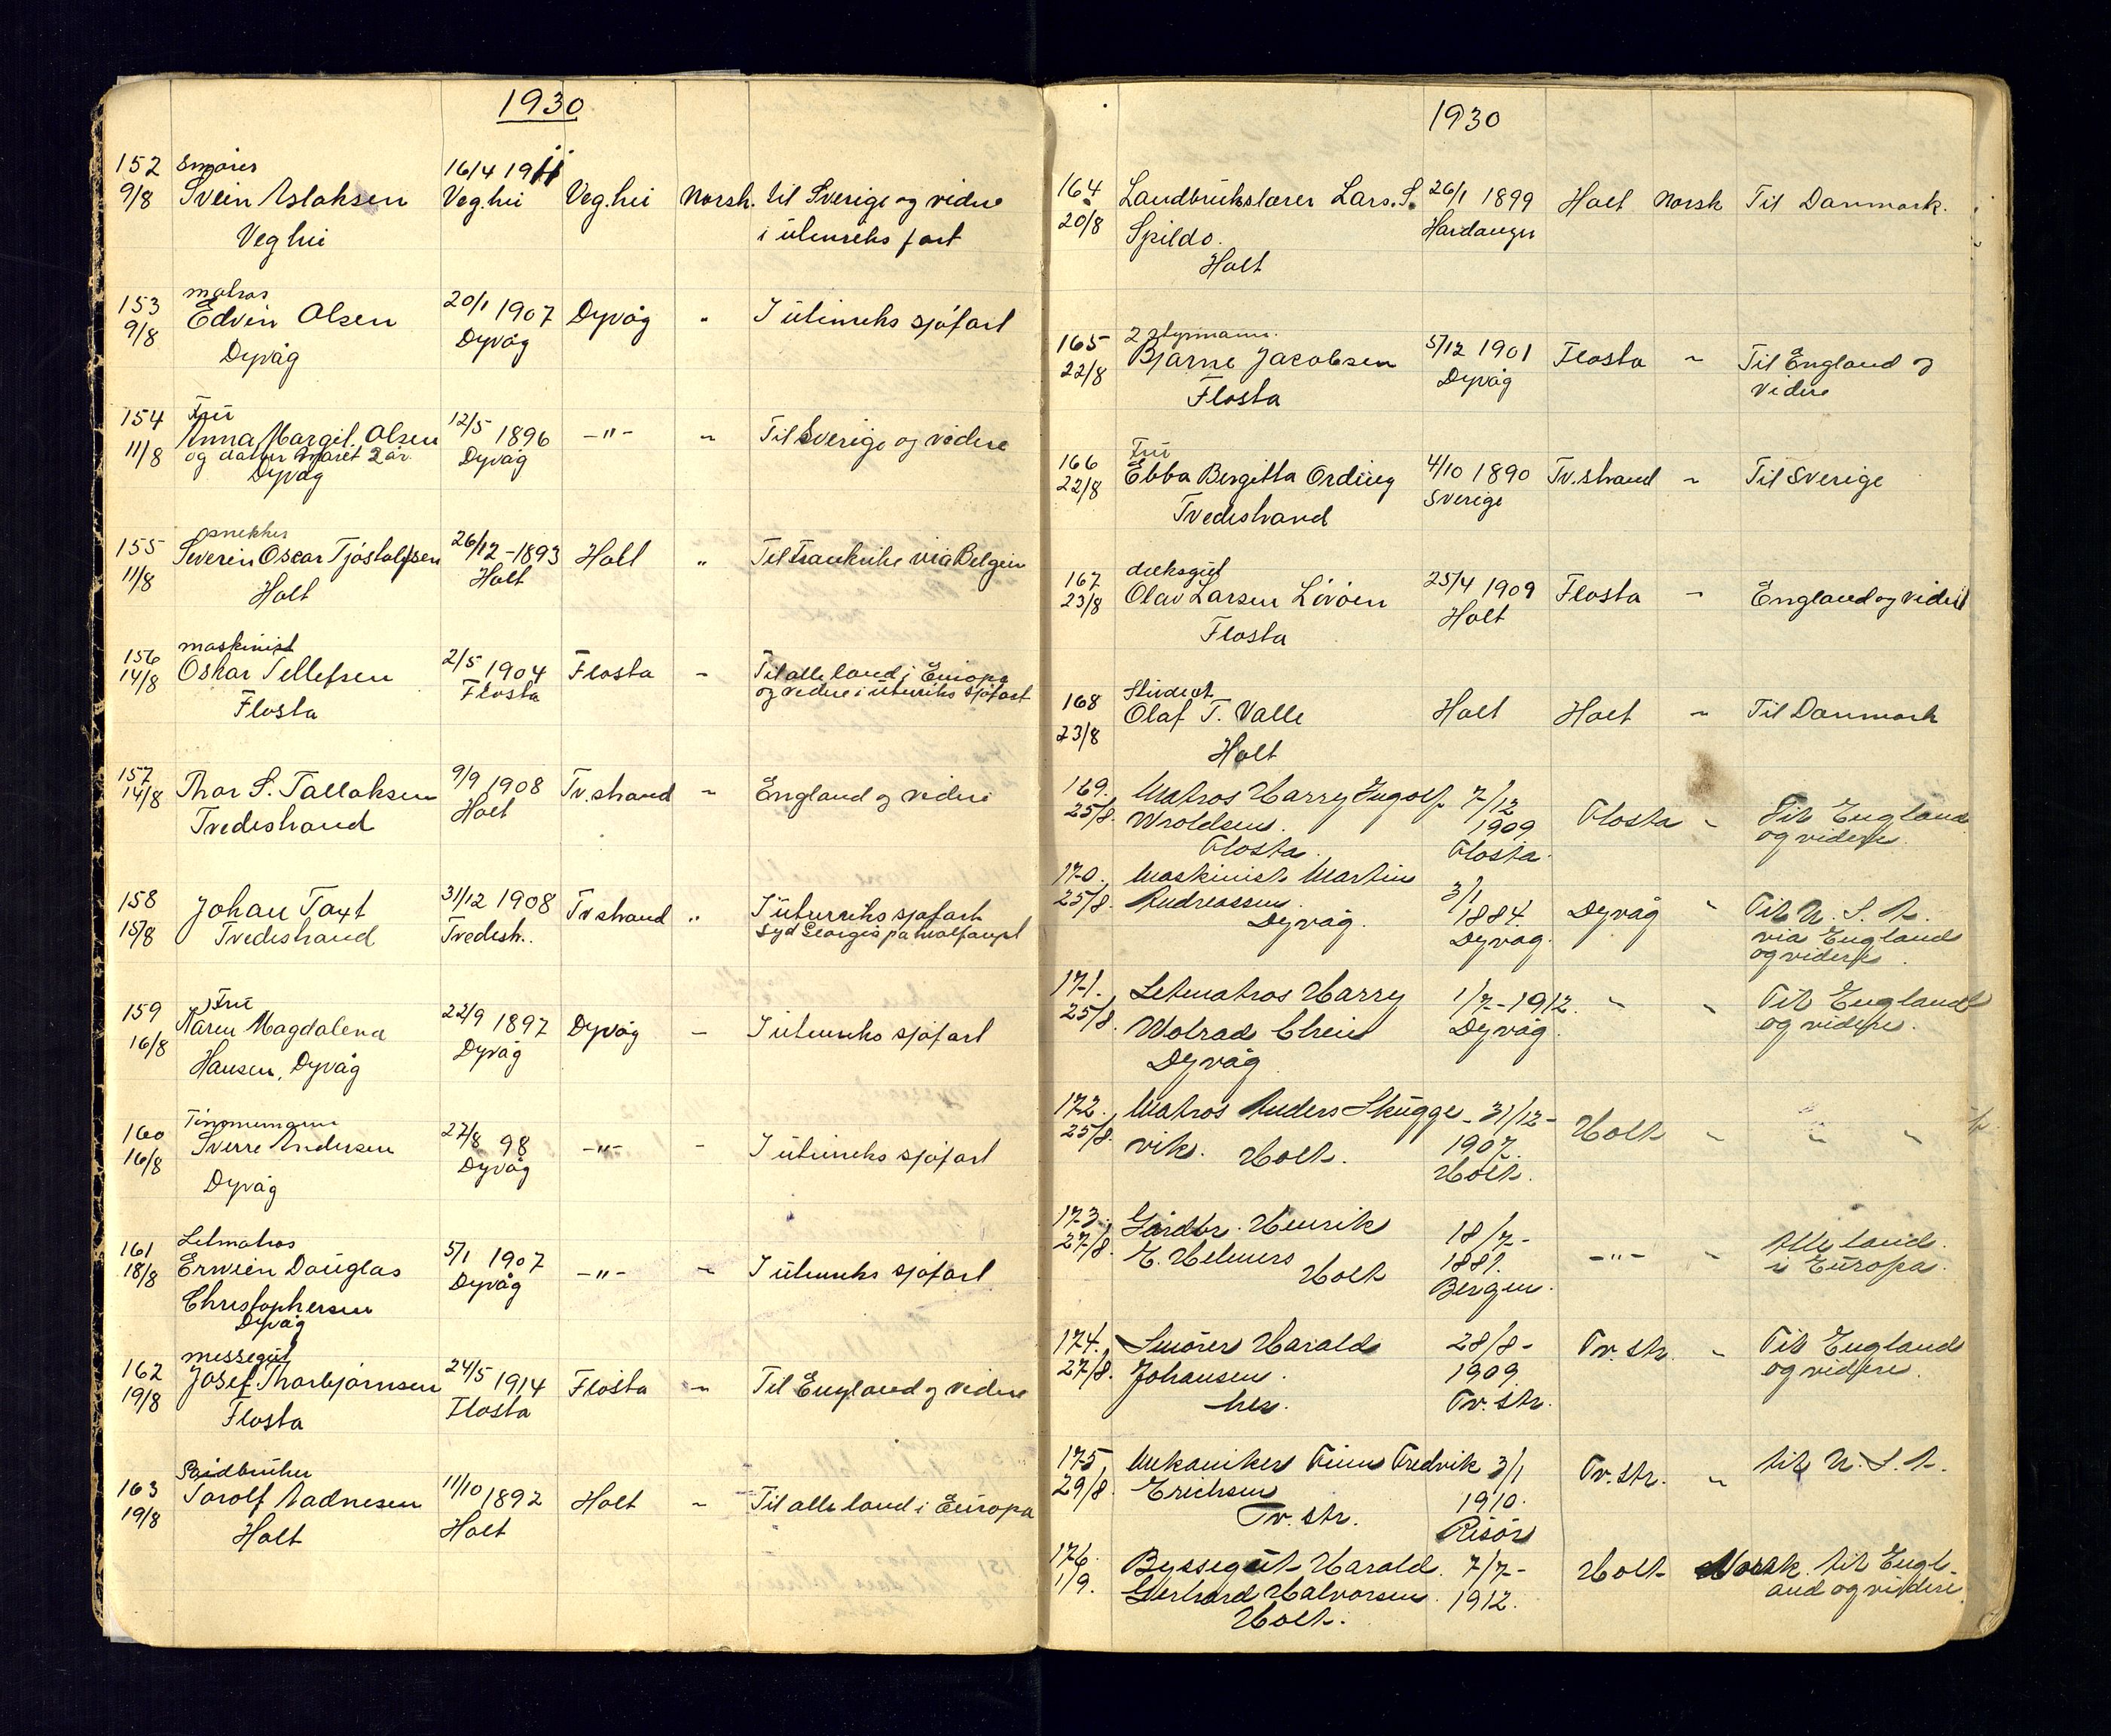 1930
152 smører 16/4 1911
9/8 Svein Aslaksen Veg.hei Veg.hei Norsk. til Sverige og videre
Veghei i utenriks fart
153 matros 20/1 1907
9/8 Edvin Olsen Dyvåg Dyvåg " I utenriks sjøfart
Dyvåg
154 Fru 12/5 1896
11/8 Anna Margit Olsen Dyvåg -"- " Til Sverige og videre
og datter Maret 2 år
Dyvåg
155 snekker 26/12-1893
11/8 Severin Oscar Tjøstolfsen Holt Holt " Til Frankrike via Belgien
Holt
156 maskinist 2/5 1904
14/8 Oskar Tellefsen Flosta Flosta " Til alle land i Europa
Flosta og videre i utenriks sjøfart
157 9/9 1908
14/8 Thor S. Tallaksen Holt Tv.strand " England og videre
Tvedestrand
158 31/12 1908
15/8 Johan Taxt Tvedestr. Tv strand " I utenriks sjøfart
Tvedestrand Syd Georgia på hvalfangst
159 Fru 22/9 1897
16/8 Karen Magdalena Dyvåg Dyvåg " I utenriks sjøfart
Hansen, Dyvåg
160 Tømmermann 27/8 98
16/8 Sverre Andersen Dyvåg -"- " I utenriks sjøfart
Dyvåg
161 Letmatros 5/1 1907
18/8 Erwien Douglas Dyvåg -"- " I utenriks sjøfart
Christophersen
Dyvåg
162 messegut 24/5 1914
19/8 Josef Thorbjørnsen Flosta Flosta " Til England og videre
Flosta
163 Gaardbruker 11/10 1892
19/8 Torolf Aadnesen Holt Holt " Til alle land i Europa
Holt
1930
164 Landbrukslærer Lars. S. 26/1 1899 Holt Norsk Til Danmark.
20/8 Spildo. Hardanger
Holt
165 2 styrmann. 5/12 1901
22/8 Bjarne Jacobsen Dyvåg Flosta " Til England og
Flosta videre
166 Fru 4/10 1890
22/8 Ebba Birgitta Ording Sverige Tv.strand " Til Sverige
Tvedestrand
167 dæksgut 25/4 1909
23/8 Olav Larsen Løvøen Holt Flosta " England og videre
Flosta
168 Student
23/8 Olaf T. Valle Holt Holt " Til Danmark
Holt
169. Matros Harry Ingolf 7/12
25/8. Wroldsen. 1909 Flosta " Til England
Flosta. Flosta. og videre.
170. Maskinist Martin 3/1
25/8. Andreassen. 1884. Dyvåg " Til U. S. A.
Dyvåg. Dyvåg. via England
og videre.
171. Letmatros Harry 1/7-1912. " " Til England
25/8. Wolrad Chein Dyvåg. og videre.
Dyvåg
172. Matros Anders Skugge- 31/12-
25/8. vik. Holt. 1907. Holt " " "
Holt.
173. Gårdbr. Henrik 18/7-
27/8. E. Helmers 1881. -"- " Alle land
Holt Bergen. i Europa.
174. Smører Harald 28/8- Tv. str. " Til England
27/8. Johansen. 1909. og videre.
her. Tv. str.
175. Mekaniker Finn Fredrik 3/1 Tv. str. " til U. S. A.
29/8. Erichsen 1910.
Tv. str. Risør
176. Byssegut Harald 7/7- Holt Norsk. til Engl-
1/9. Gerhard Halvorsen. 1912. and og videre.
Holt.